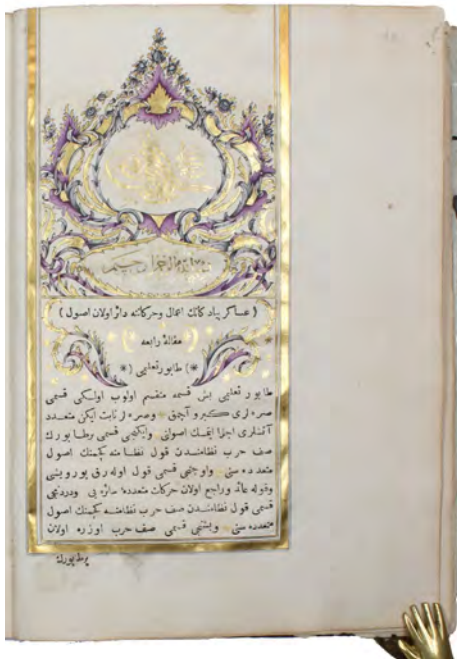 بسم الله الرحمن الرحيم
( عساكر پيادكانك اعمال وحركاتنه دائر اولان اصول )
مقالهٔ رابعه
(* طابور تعليمى *)
طابور تعليمى بش قسمه منقسم اولوب اولكى قسمى
صره لرى كشيرو آچمق وصره لر ثابت ايكن متعدد
آتشلرى اجرا ايتمك اصولنى وايكنجى قسمى برطابورك
صف حرب نظامندن قول نظامنه كچمنك اصول
متعدده سنى واوچنجى قسمى قول اوله رق يورويشى
وقوله عائد وراجع اولان حركات متعددهٔ سائره يى ودردنجى
قسمى قول نظامندن صف حرب نظامنه كچمنك اصول
متعدده سنى وبشنجى قسمى صف حرب اوزره اولان
برطابورك